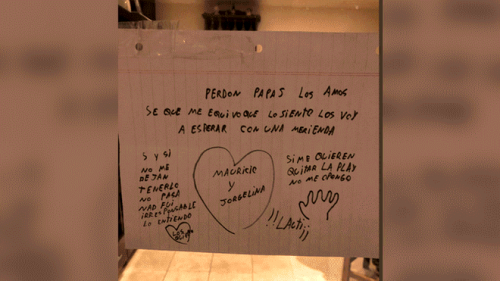 PERDON PAPAS LOS AMOS
SE QUE ME EQUIVOQUE LO SIENTO LOS VOY
A ESPERAR CON UNA MERIENDA
S y SI
NO ME
DEJAN
TENERLO
NO PASA
NAD FUI
IRRESPONSABLE
LO ENTIENDO
MAURICIO
Y
JORGELINA
SI ME QUIEREN
QUITAR LA PLAY
NO ME OPONGO